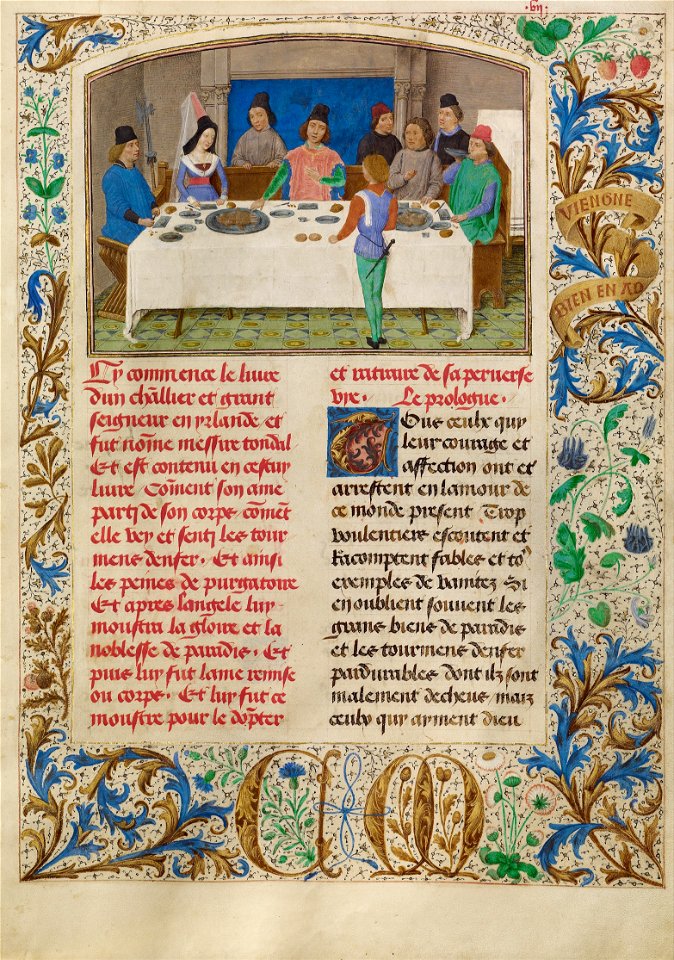 Cy commence le liure
dun challier et grant
seigneur en yrlande et
fut nōme messire tondal
Et est contenu en cestuy
liure Cōment son ame
parti de son corps comēt
elle vey et senti les tour
mens denfer. Et ainsi
les peines de purgatoire
Et apres langele luy
moustra la gloire et la
noblesse de paradis. Et
puis luy fut lame remise
ou corps. Et luy fut ce
moustre pour le dōpter
et retraire de sa peruerse
vye. Le prologue.
Tous ceulx quy
leur courage et
affection ont et
arrestent en lamour de
ce monde present Trop
voulentiers escoutent et
Racomptent fables et to⁹
exemples de vanitez Si
en oublient souuent les
grans biens de paradis
et les tourmens denfer
pardurables dont ilz sont
malement deceus, mais
ceulx quy ayment dieu
VIENGNE
BIEN EN
C M